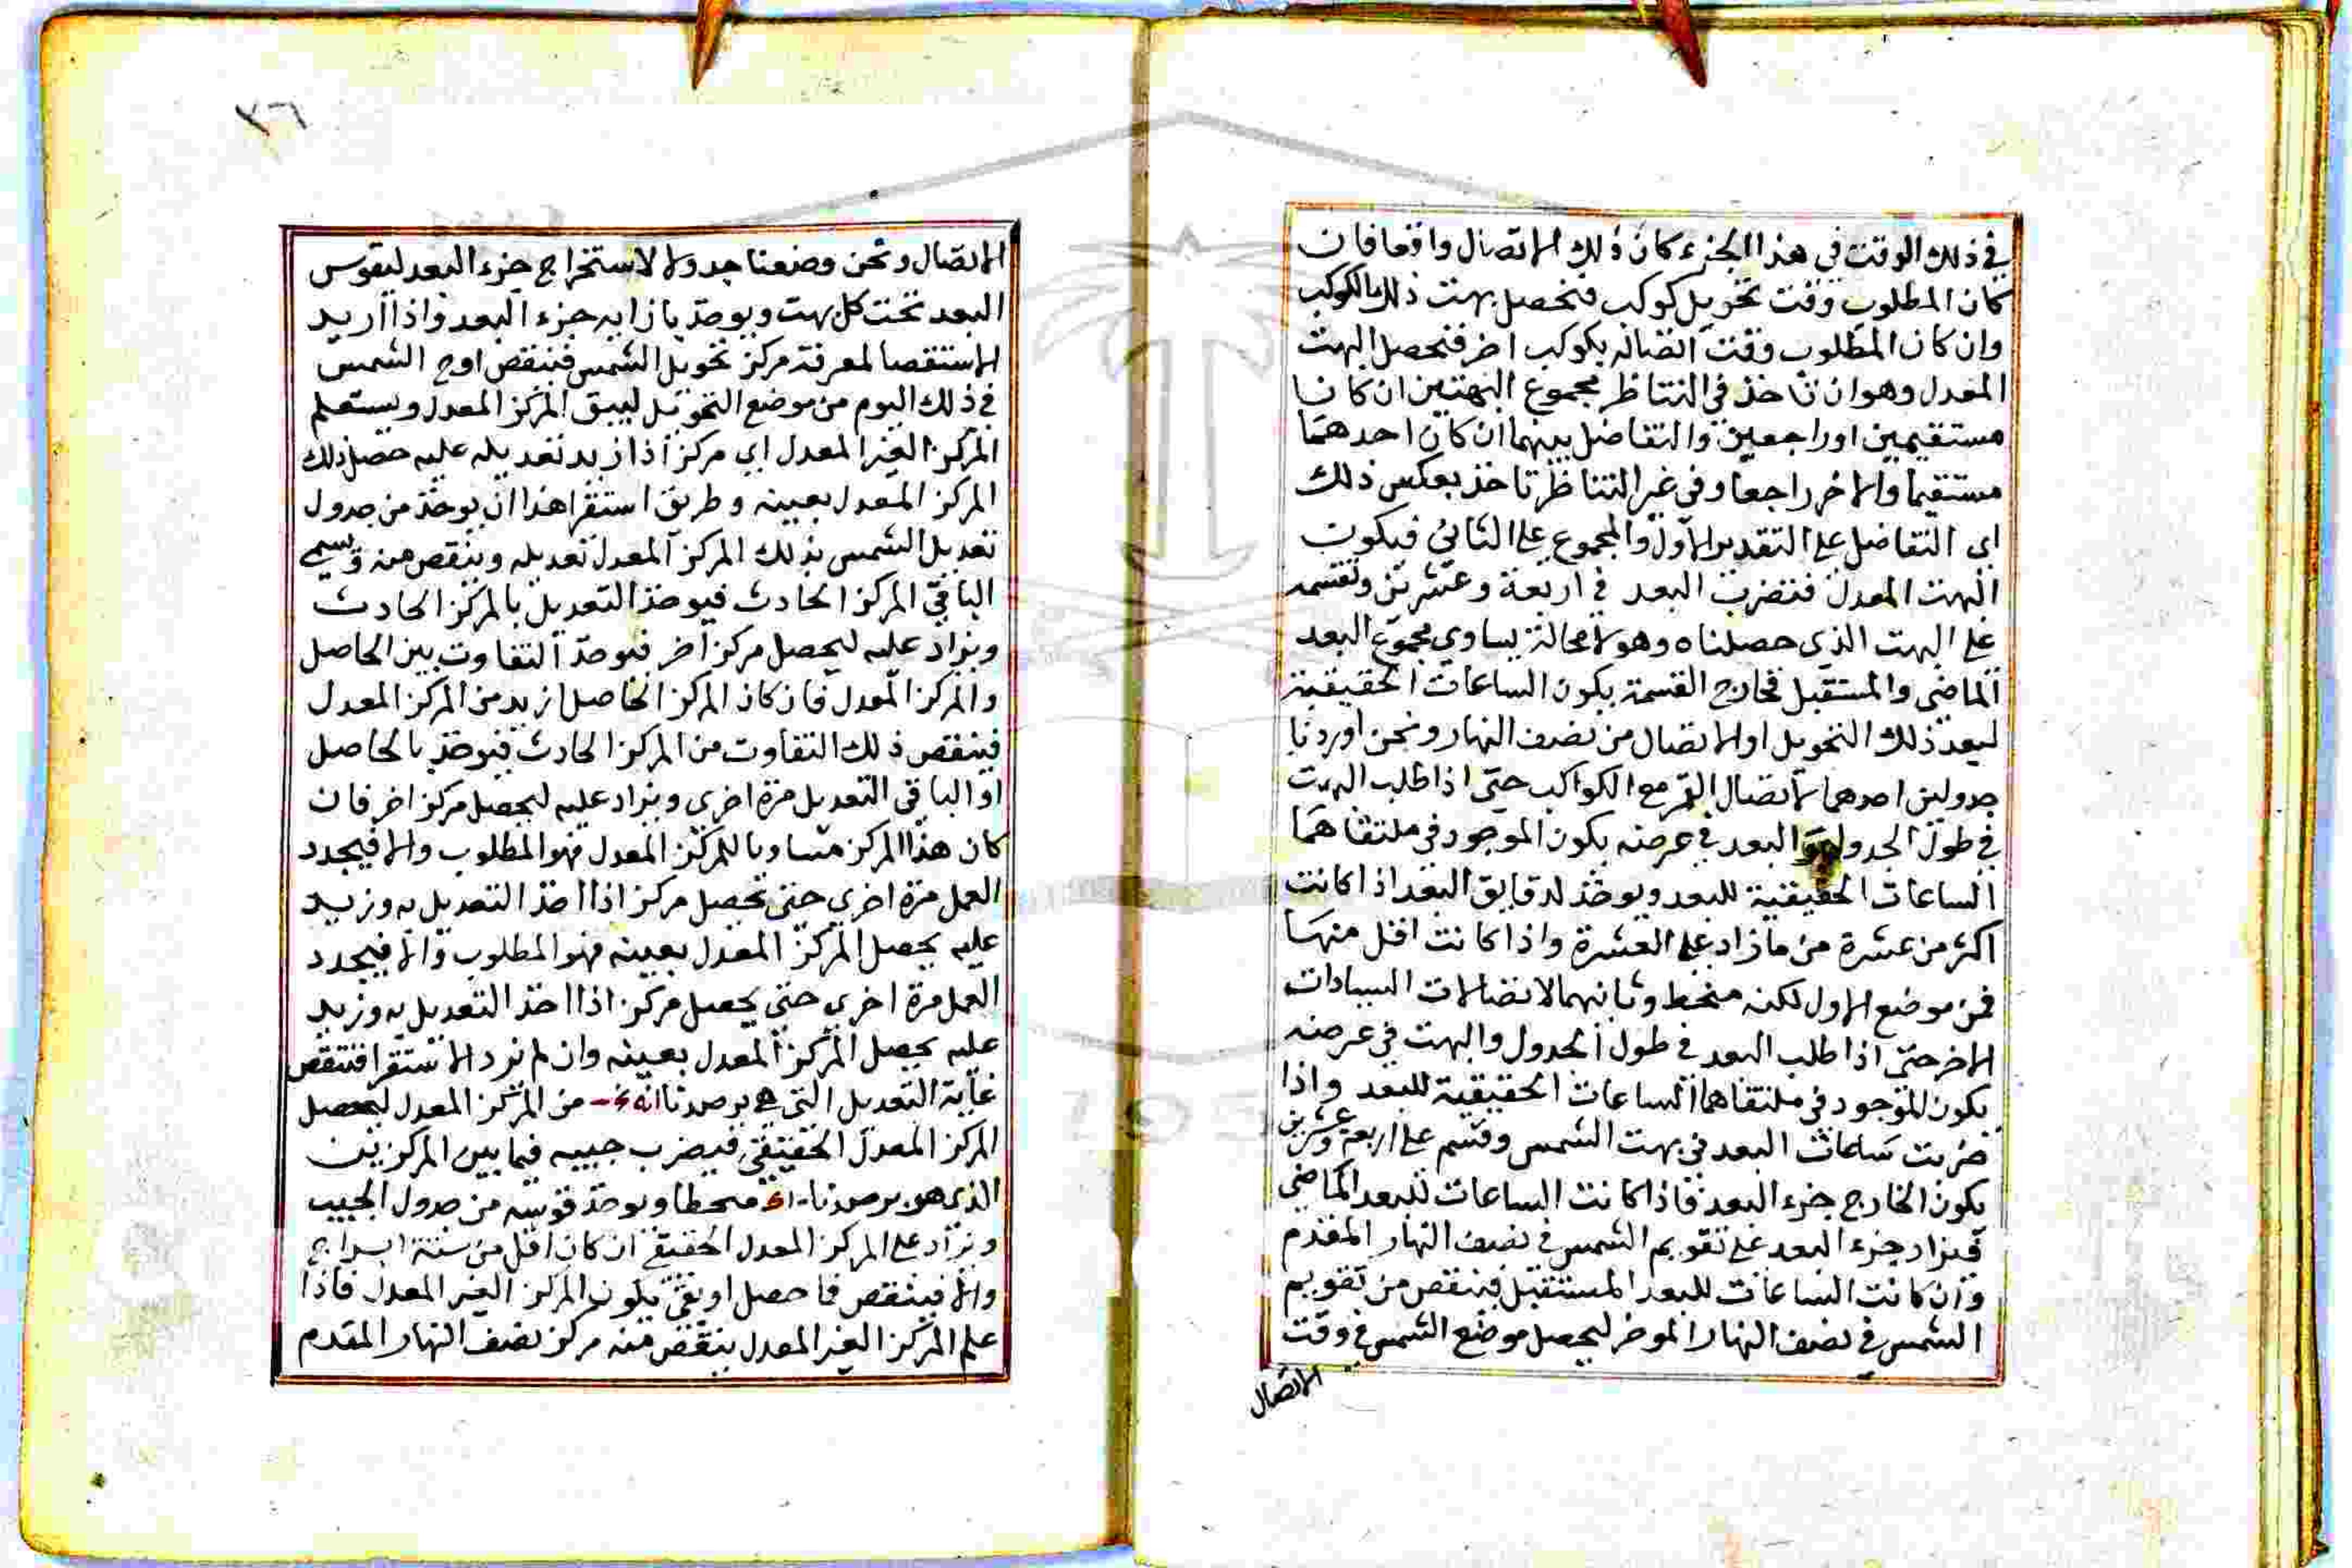 في ذلك الوقت في هذا الجزء كان ذلك الاتصال واقعا فان
كان المطلوب وقت تحويل كوكب فنحصل بهت ذلك الكوكب
وان كان المطلوب وقت اتصاله بكوكب اخر فنحصل البهت
المعدل وهو ان ناخذ في التناظر مجموع البهتين ان كانا
مستقيمين او راجعين والتفاضل بينهما ان كان احدهما
مستقيما والاخر راجعا وفي غير التناظر ناخذ بعكس ذلك
اي التفاضل على التقدير الاول والمجموع على الثاني فيكون
البهت المعدل فنضرب البعد في اربعة وعشرين ونقسمه
على البهت الذي حصلناه وهو لا محالة يساوي مجموع البعد
الماضي والمستقبل فخارج القسمة يكون الساعات الحقيقية
لبعد ذلك التحويل او الاتصال من نصف النهار ونحن اوردنا
جدولين احدهما لاتصال القمر مع الكواكب حتى اذا طلب البهت
في طول الجدول والبعد في عرضه يكون الموجود في ملتقاهما
الساعات الحقيقية للبعد ويوخذ لدقايق البعد اذا كانت
اكثر من عشرة من ما زاد على العشرة واذا كانت اقل منها
فمن موضع الاول لكنه منحط وثانيهما لاتصالات السيارات
الاخر حتى اذا طلب البعد في طول الجدول والبهت في عرضه
يكون الموجود في ملتقاهما الساعات الحقيقية للبعد واذا
ضربت ساعات البعد في بهت الشمس وقسم على اربعة وعشرين
يكون الخارج جزء البعد فاذا كانت الساعات للبعد الماضي
فيزاد جزء البعد على تقويم الشمس في نصف النهار المقدم
وان كانت الساعات للبعد المستقبل فينقص من تقويم
الشمس في نصف النهار الموخر ليحصل موضع الشمس في وقت
الاتصال
٣٦
الاتصال ونحن وضعنا جدولا لاستخراج جزء البعد ليقوس
البعد تحت كل بهت ويوخذ بازايه جزء البعد واذا اريد
الاستقصا لمعرفة مركز تحويل الشمس فينقص اوج الشمس
في ذلك اليوم من موضع التحويل ليبق المركز المعدل ويستعلم
المركز الغير المعدل اي مركز اذا زيد تعديله عليه حصل ذلك
المركز المعدل بعينه وطريق استقرا هذا ان يوخذ من جدول
تعديل الشمس بذلك المركز المعدل تعديله وينقص منه ويسمى
الباقي المركز الحادث فيوخذ التعديل بالمركز الحادث
ويزاد عليه ليحصل مركز اخر فيوخذ التفاوت بين الحاصل
والمركز المعدل فان كان المركز الحاصل ازيد من المركز المعدل
فينقص ذلك التفاوت من المركز الحادث فيوخذ بالحاصل
او الباقي التعديل مرة اخرى ويزاد عليه ليحصل مركز اخر فان
كان هذا المركز مساويا للمركز المعدل فهو المطلوب والا فيجدد
العمل مرة اخرى حتى يحصل مركز اذا اخذ التعديل به وزيد
عليه يحصل المركز المعدل بعينه فهو المطلوب والا فيجدد
العمل مرة اخرى حتى يحصل مركز اذا اخذ التعديل به وزيد
عليه يحصل المركز المعدل بعينه وان لم نرد الاستقرا فننقص
غاية التعديل التي هي برصدنا من المركز المعدل ليحصل
المركز المعدل الحقيقي فيضرب جيبه فيما بين المركزين
الذي هو برصدنا منحطا ويوخذ قوسه من جدول الجيب
ويزاد على المركز المعدل الحقيقي ان كان اقل من ستة ابراج
والا فينقص فما حصل او بقي يكون المركز الغير المعدل فاذا
علم المركز الغير المعدل ينقص منه مركز نصف النهار المقدم